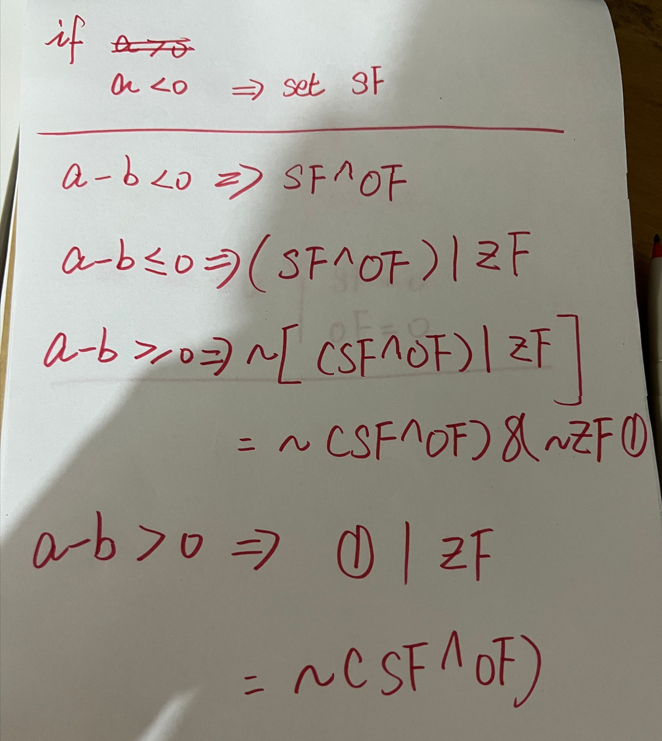 if a>0
a<0 ⇒ set SF
a-b<0 ⇒ SF^OF
a-b≤0 ⇒ (SF^OF) | ZF
a-b≥0 ⇒ ~[(SF^OF) | ZF]
= ~(SF^OF) & ~ZF ①
a-b>0 ⇒ ① | ZF
= ~(SF^OF)